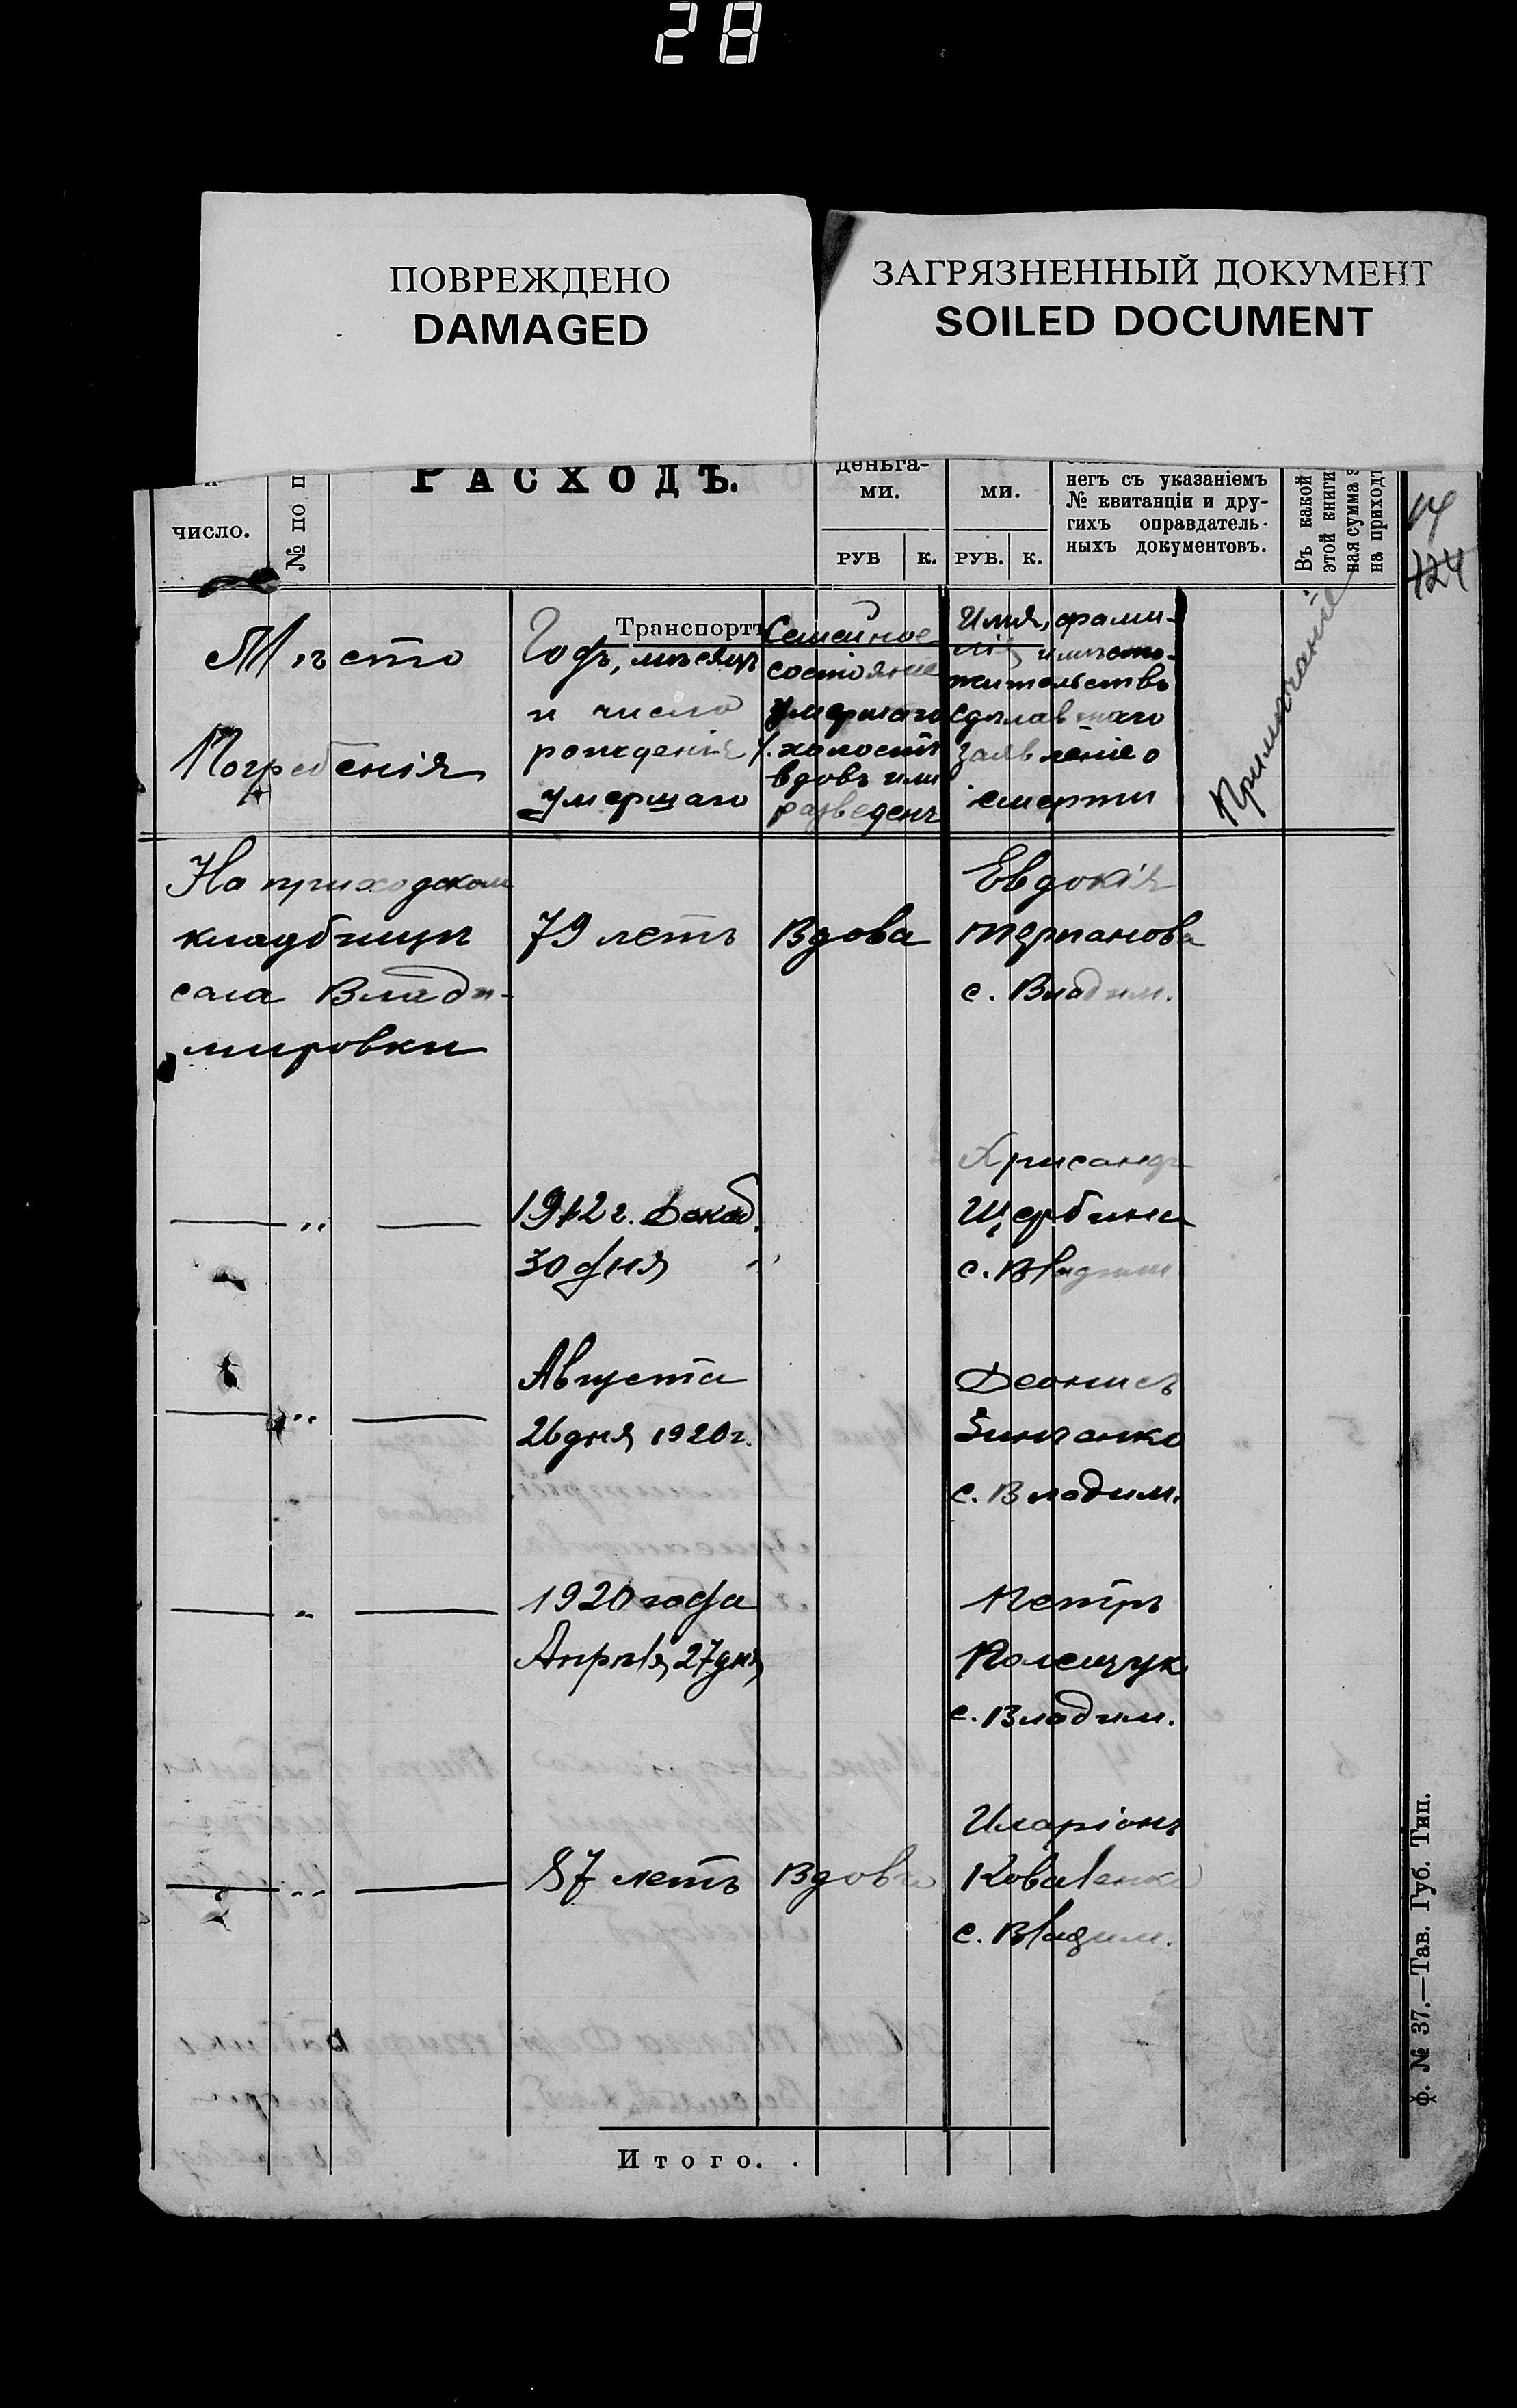 28
ПОВРЕЖДЕНО
DAMAGED
ЗАГРЯЗНЕННЫЙ ДОКУМЕНТ
SOILED DOCUMENT
число.
№ по п
РАСХОДЪ.
деньга-
ми.
РУБ К.
ми.
РУБ. К.
негъ съ указаніемъ
№ квитанціи и дру-
гихъ оправдатель-
ныхъ документовъ.
Въ какой
этой книги
ная сумма з
на приходъ
124
Мѣсто
Погребенія
Транспортъ
Годъ, мѣсяцъ
и число
рожденія
умершаго
Семейное
состояніе
умершаго
холостъ
вдовъ или
разведенъ
Имя, фами-
лія и мѣсто-
жительство
сдѣлавшаго
заявленіе о
смерти
Примѣчаніе
На приходском
кладбищѣ
села Влади-
мировки
79 летъ
Вдова
Евдокія
с. Владим.
— " —
1912 г. Декаб.
30 дня
Хрисанфъ
Щербина
с. Владим
— " —
Августа
26 дня 1920 г.
Деонисъ
Зинченко
с. Владим.
— " —
1920 года
Апрѣля 27 дня
Петръ
Полещук
с. Владим.
— " —
87 летъ
Вдова
Иларіонъ
Коваленко
с. Владим.
Итого.
ф. № 37.—Тав. Губ. Тип.